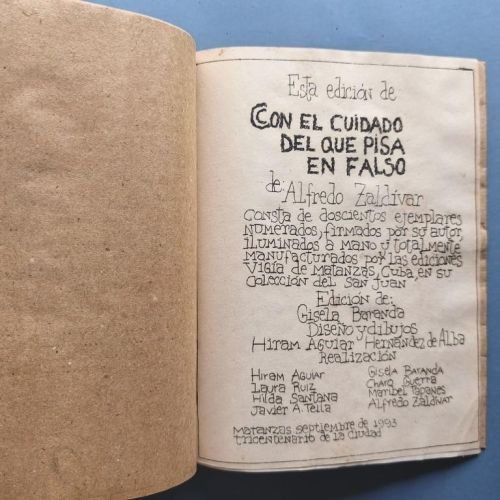 Esta edición de
CON EL CUIDADO
DEL QUE PISA
EN FALSO
de: Alfredo Zaldívar
Consta de doscientos ejemplares
numerados, firmados por su autor,
iluminados a mano y totalmente
manufacturados por las ediciones
Vigía de Matanzas, Cuba, en su
Colección del San Juan
Edición de:
Gisela Baranda
Diseño y dibujos
Hiram Aguiar Hernández de Alba
Realización
Hiram Aguiar
Laura Ruiz
Hilda Santana
Javier A. Tella
Gisela Baranda
Charo Guerra
Maribel Tápanes
Alfredo Zaldívar
Matanzas septiembre de 1993
tricentenario de la ciudad